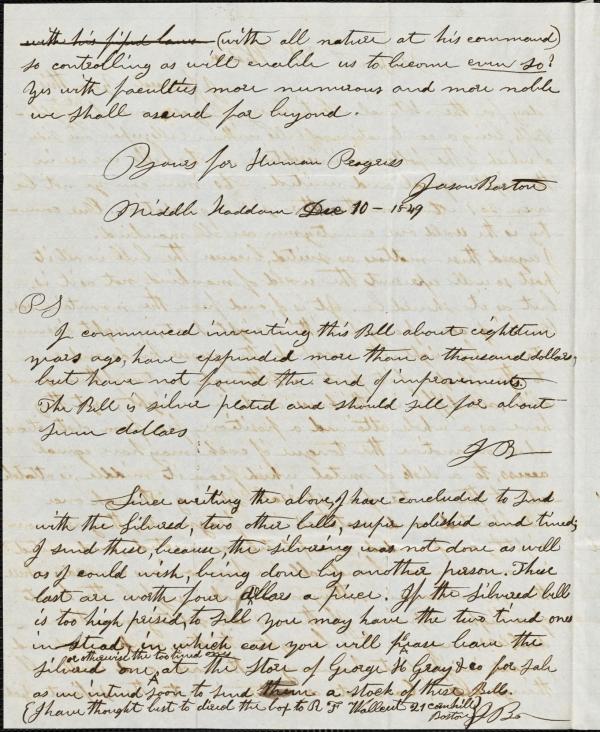 with his fixed laws (with all nature at his command)
so controlling as will enable us to become even so?
Yes with faculties more numerous and more noble
we shall ascend far beyond.
Yours for Human Progress
Jason Barton
Middle Haddam Dec 10 - 1849
PS
I commenced inventing this Bell about eighteen
years ago, have expended more than a thousand dollars,
but have not found the end of improvements.
The Bell is silver plated and should sell for about
seven dollars
J B
Since writing the above, I have concluded to send
with the Silvered, two other bells, super polished and tined;
I send these, because, the silvering was not done as well
as I could wish, being done by another person. These
last are worth four dollars a piece. If the silvered bell
is too high prised to sell you may have the two tined ones
in stead, in which case you will please leave the
or otherwise the too tined ones
silvered one, at the store of George H Gray & co for sale
as we intend soon to send them a stock of these Bells.
(I have thought best to direct the box to R F Wallcut 21 cornhill
Boston J Ba